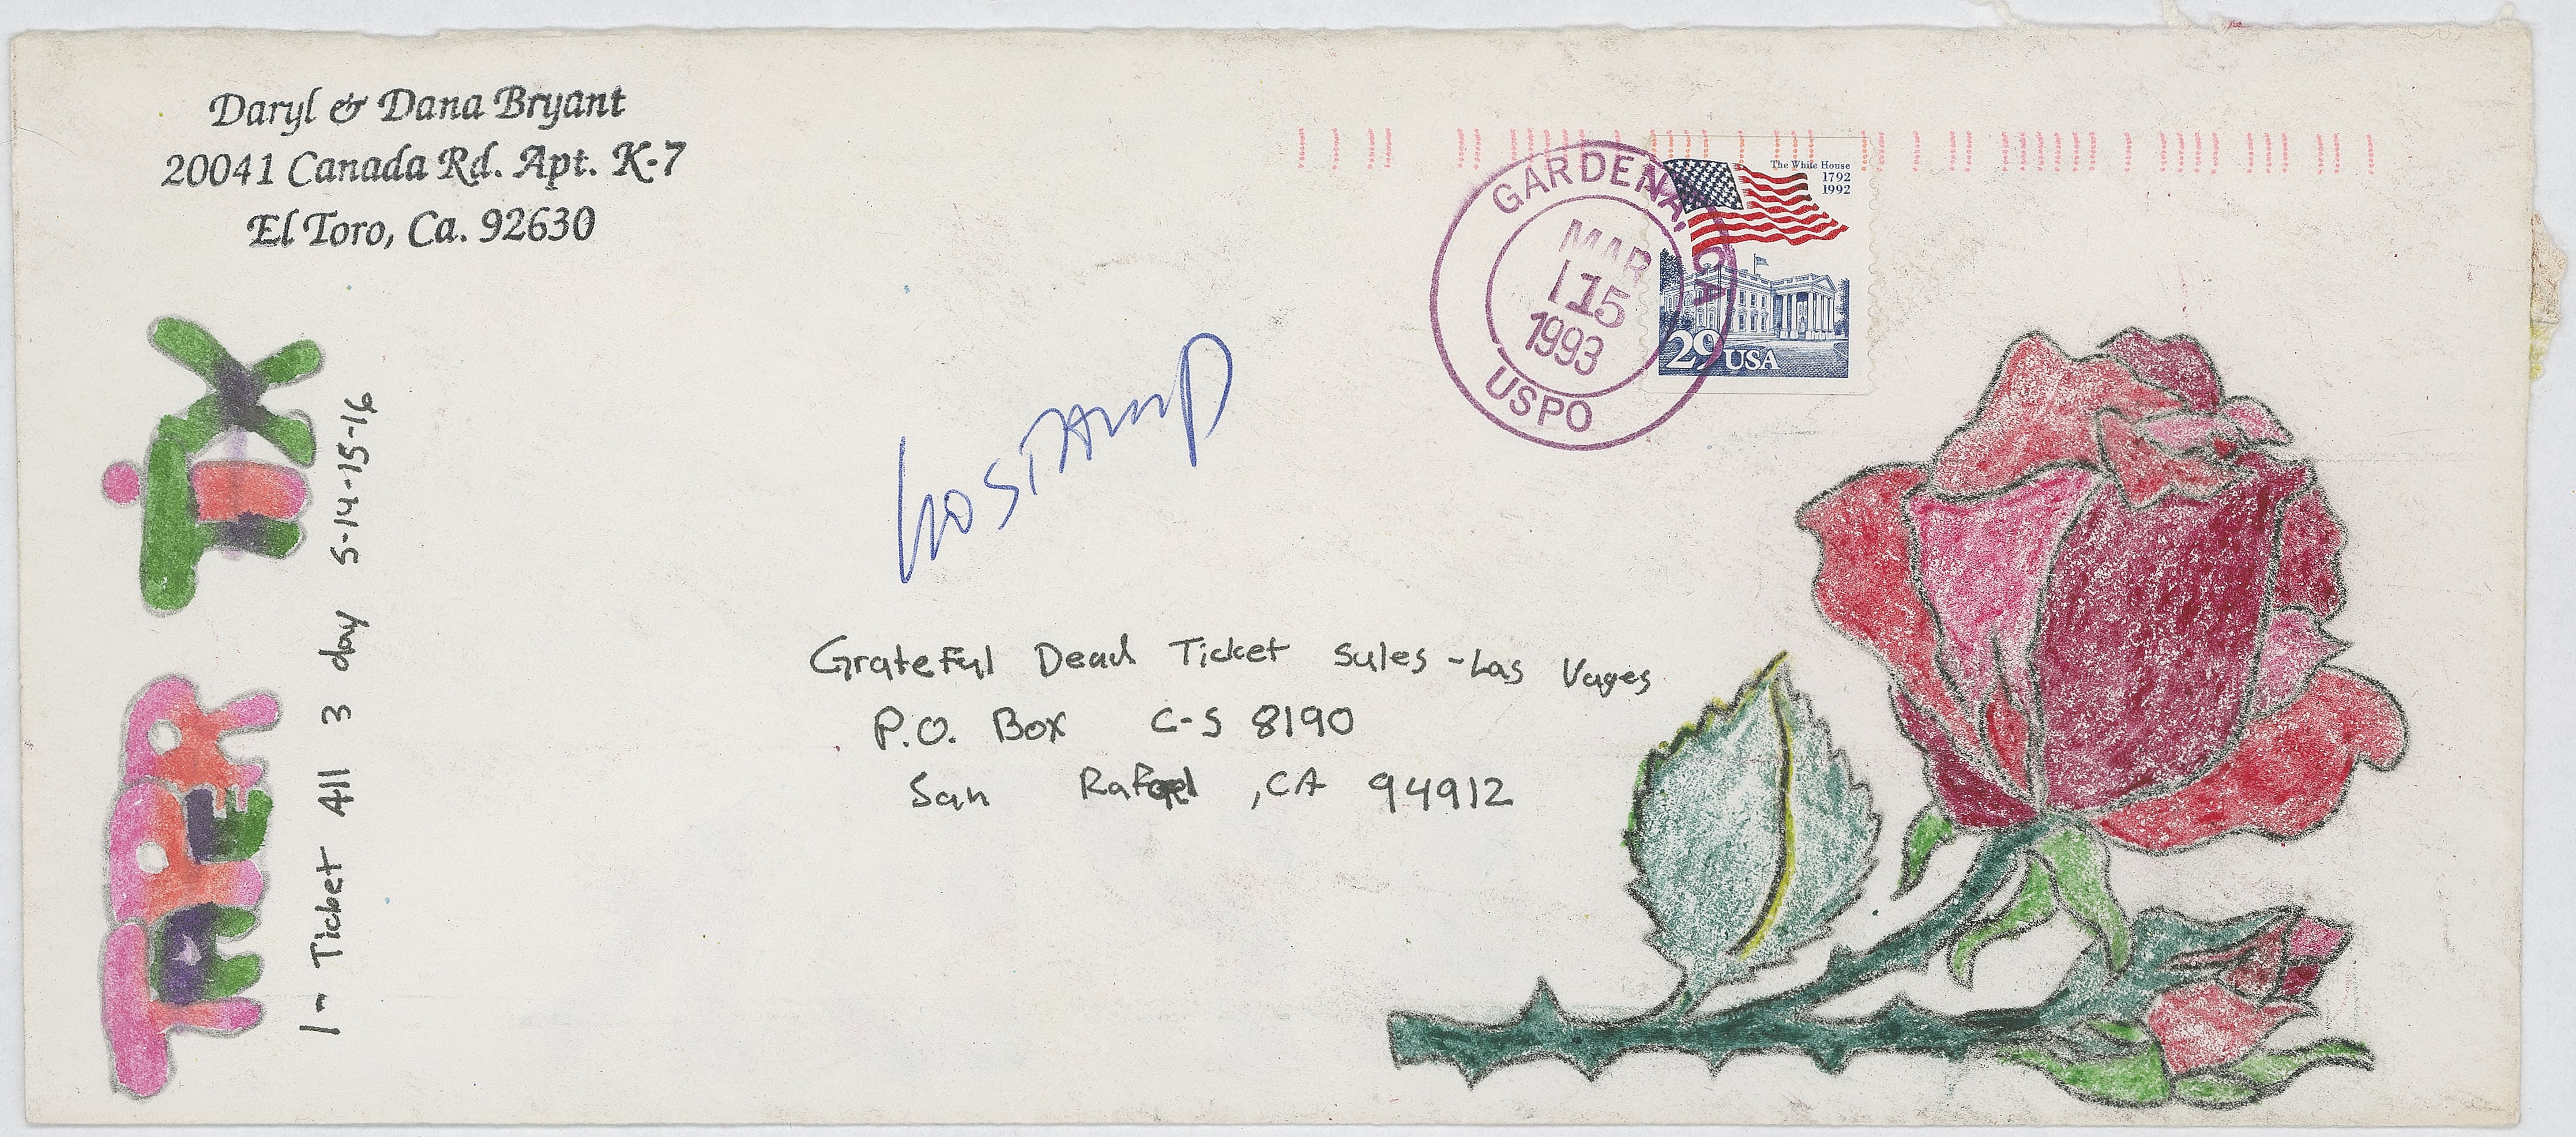 Daryl & Dana Bryant
20041 Canada Rd. Apt. K-7
El Toro, Ca. 92630
GARDENA, CA
MAR
15
1993
USPO
The White House
1792
1992
29 USA
NO STAMP
TAPER TiX
1- Ticket All 3 day 5-14-15-16
Grateful Dead Ticket Sales - Las Vages
P.O. Box C-S 8190
San Rafael, CA 94912